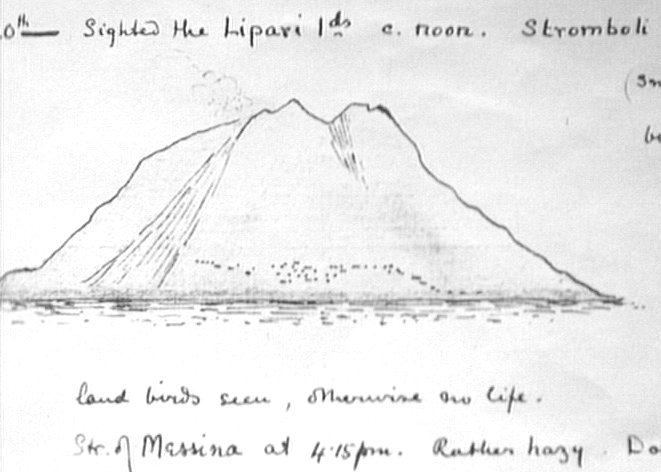 0th — Sighted the Lipari Ids c. noon. Stromboli
land birds seen, otherwise no life.
Str. of Messina at 4.15pm. Rather hazy. Do